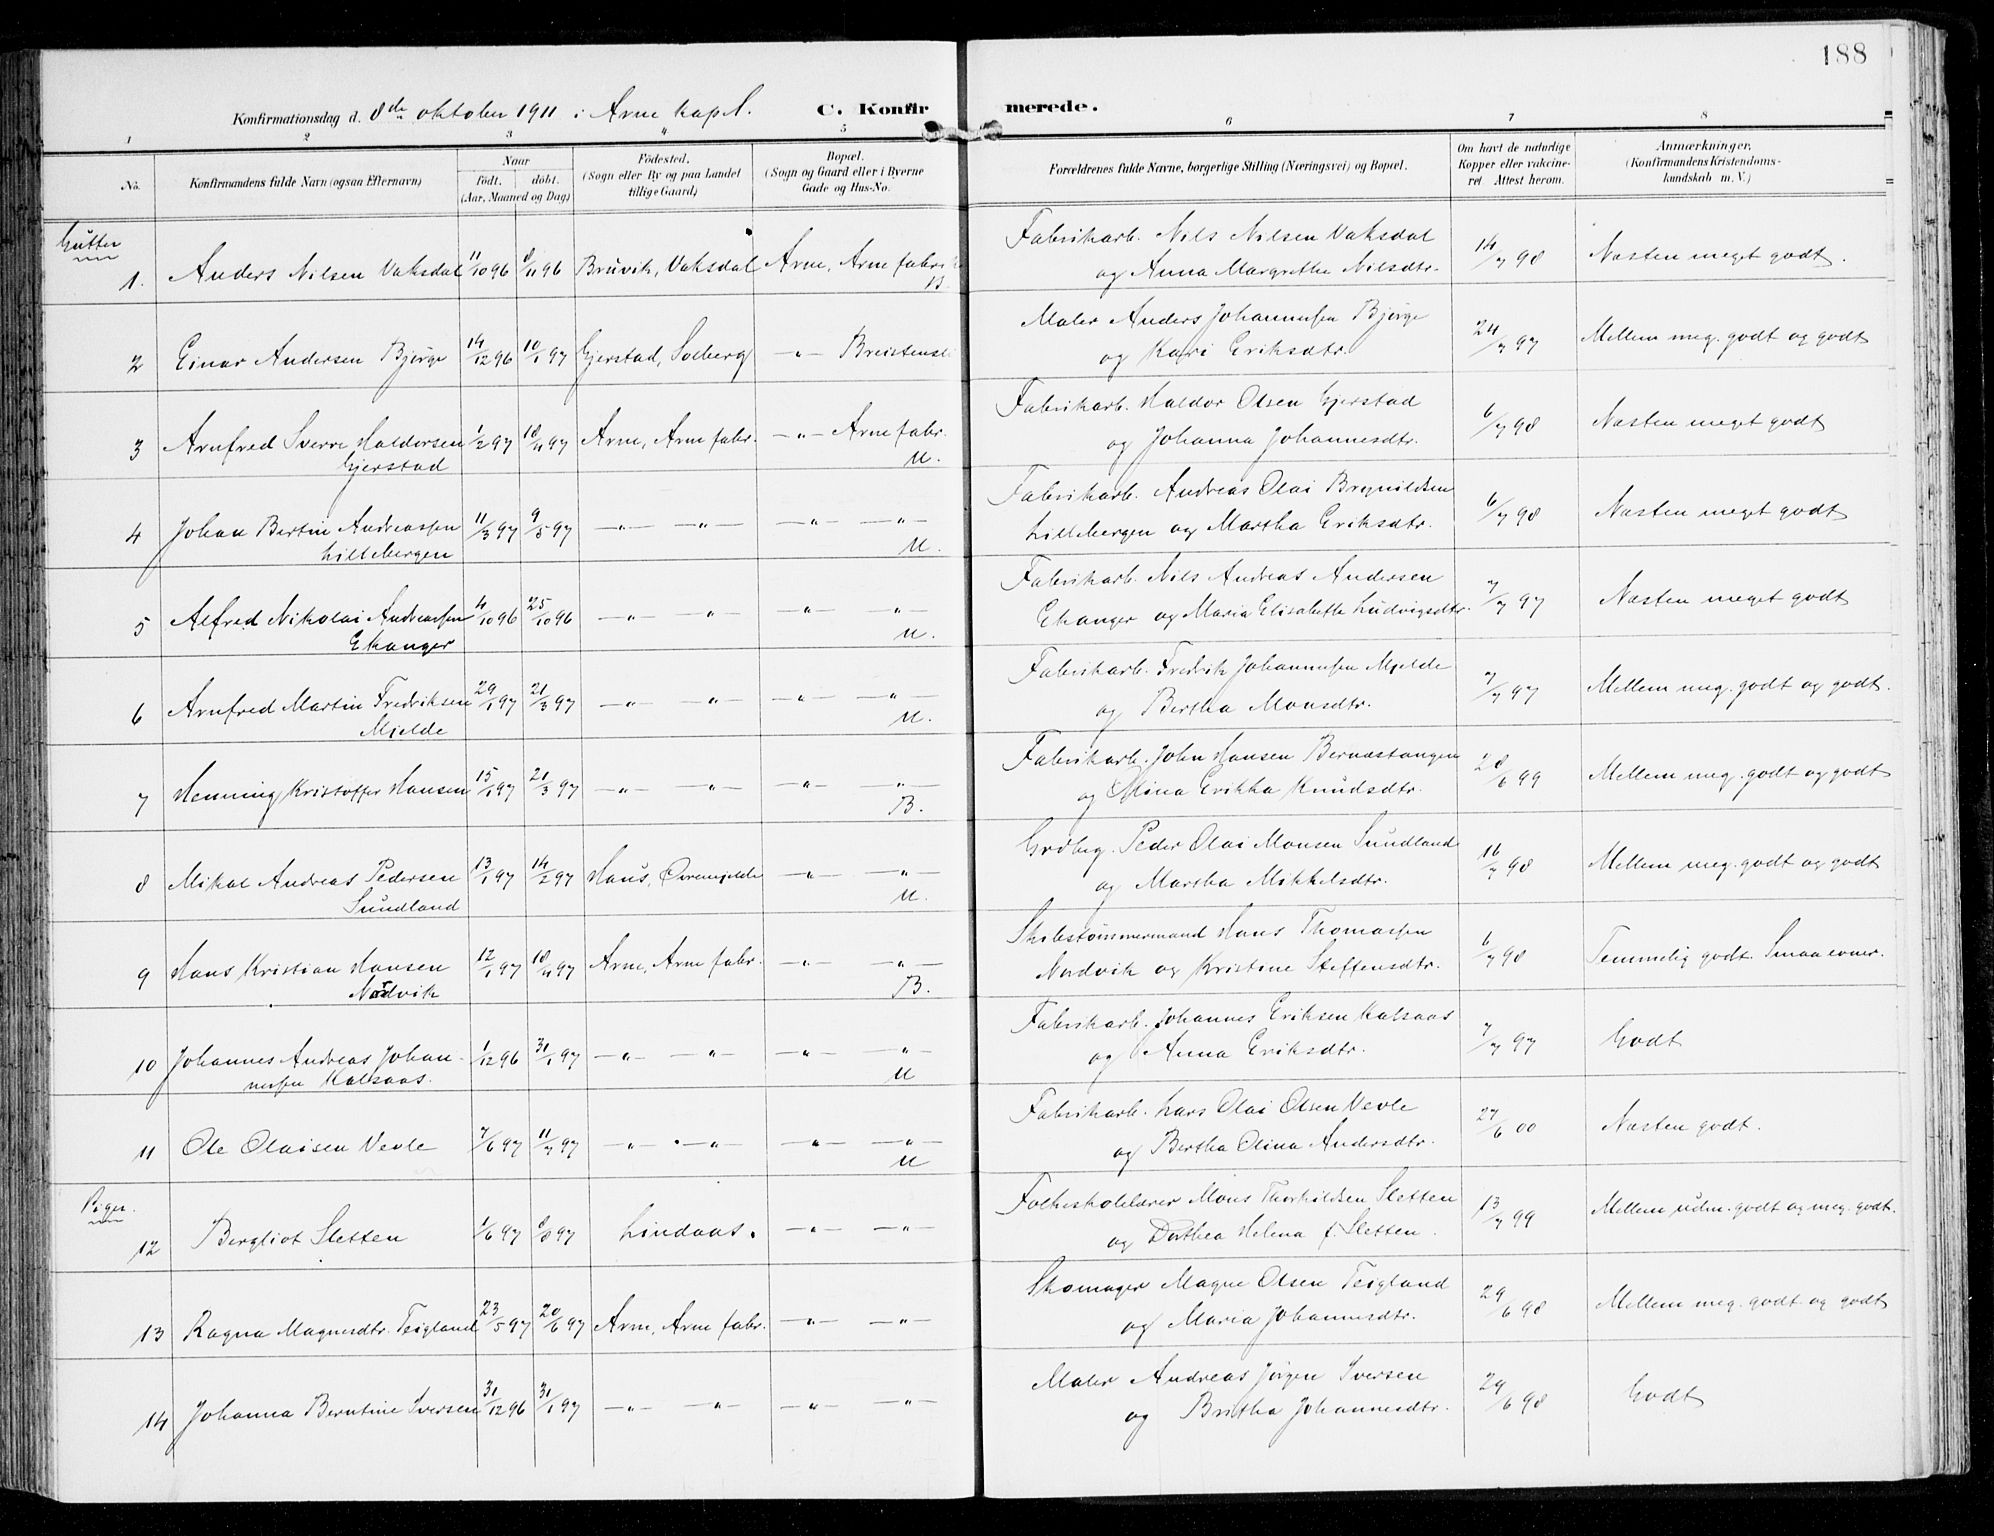 188
Konfirmationsdag d. 8de oktober 1911 i Arne kapel. C. Konfirmerede.
1 2 3 4 5 6 7 8
No. Konfirmandens fulde Navn (ogsaa Efternavn) Naar født. døbt. (Aar, Maaned og Dag) Fødested. (Sogn eller By og paa Landet tillige Gaard) Bopæl. (Sogn og Gaard eller i Byerne Gade og Hus-No. Forældrenes fulde Navne, borgerlige Stilling (Næringsvei) og Bopæl. Om havt de naturlige Kopper eller vakcineret. Attest herom. Anmærkninger. (Konfirmandens Kristendomskundskab m. V.)
Gutter
1. Anders Nilsen Vaksdal 11/10 96 8/11 96 Bruvik, Vaksdal Arne, Arne fabrik B. Fabrikarb. Nils Nilsen Vaksdal 14/7 98 Næsten meget godt.
og Anna Margrethe Nilsdtr.
2 Einar Andersen Bjørge 14/12 96 10/1 97 Gjerstad, Solberg -"- Breistensli Maler Anders Johannessen Bjørge 24/7 97 Mellem meg. godt og godt
og Kari Eriksdtr.
3 Arnfred Sverre Haldorsen 1/2 97 18/4 97 Arne, Arne fabr. -"- Arne fabr. Fabrikarb. Haldor Olsen Gjerstad 6/7 98 Næsten meget godt
Gjerstad U. og Johanna Johannesdtr.
4 Johan Bertin Andreassen 11/3 97 9/5 97 -"- -"- -"- -"- Fabrikarb. Andreas Olai Brynildsen 6/7 98 Næsten meget godt
Lillebergen U. Lillebergen og Martha Eriksdtr.
5 Alfred Nikolai Andreassen 4/10 96 25/10 96 -"- -"- -"- -"- Fabrikarb. Nils Andreas Andersen 7/7 97 Næsten meget godt
Ekanger U. Ekanger og Maria Elisabetha Ludvigsdtr.
6 Arnfred Martin Fredriksen 29/1 97 21/3 97 -"- -"- -"- -"- Fabrikarb. Fredrik Johannessen Mjelde 7/7 97 Mellem meg. godt og godt.
Mjelde U. og Bertha Monsdtr.
7 Henning Kristoffer Hansen 15/1 97 21/3 97 -"- -"- -"- -"- Fabrikarb. John Hansen Bernastangen 28/6 99 Mellem meg. godt og godt
B. og Olina Erikka Knudsdtr.
8 Mikal Andreas Pedersen 13/1 97 14/2 97 Haus, Øvremjelde -"- -"- Grdbrg. Peder Olai Monsen Sundland 16/7 98 Mellem meg. godt og godt
Sundland U. og Martha Mikkelsdtr.
9 Hans Kristian Hansen 12/1 97 18/4 97 Arne, Arne fabr. -"- -"- Skibstømmermand Hans Thomassen 6/7 98 Temmelig godt. Smaa evner.
Nordvik B. Nordvik og Kristine Steffensdtr.
10 Johannes Andreas Johan- 1/12 96 31/1 97 -"- -"- -"- -"- Fabrikarb. Johannes Eriksen Kalsaas 7/7 97 Godt
nessen Kalsaas. U og Anna Eriksdtr.
11 Ole Olaisen Vevle 7/6 97 11/7 97 -"- -"- -"- -"- Fabrikarb. Lars Olai Olsen Vevle 27/6 00 Næsten godt.
U og Bertha Olina Andersdtr.
Piger.
12 Bergliot Sletten 1/6 97 8/8 97 Lindaas. -"- -"- Folkeskolelærer Mons Thorkildsen Sletten 13/7 99 Mellem udm. godt og meg. godt.
og Dorthea Helena f. Sletten.
13 Ragna Magnesdtr. Teigland 23/5 97 20/6 97 Arne, Arne fabr. -"- -"- Skomager Magne Olsen Teigland 29/6 98 Mellem meg. godt og godt
og Maria Johannesdtr.
14 Johanna Berntine Iversen 31/12 96 31/1 97 -"- -"- -"- -"- Maler Andreas Jørgen Iversen 29/6 98 Godt
og Britha Johannesdtr.